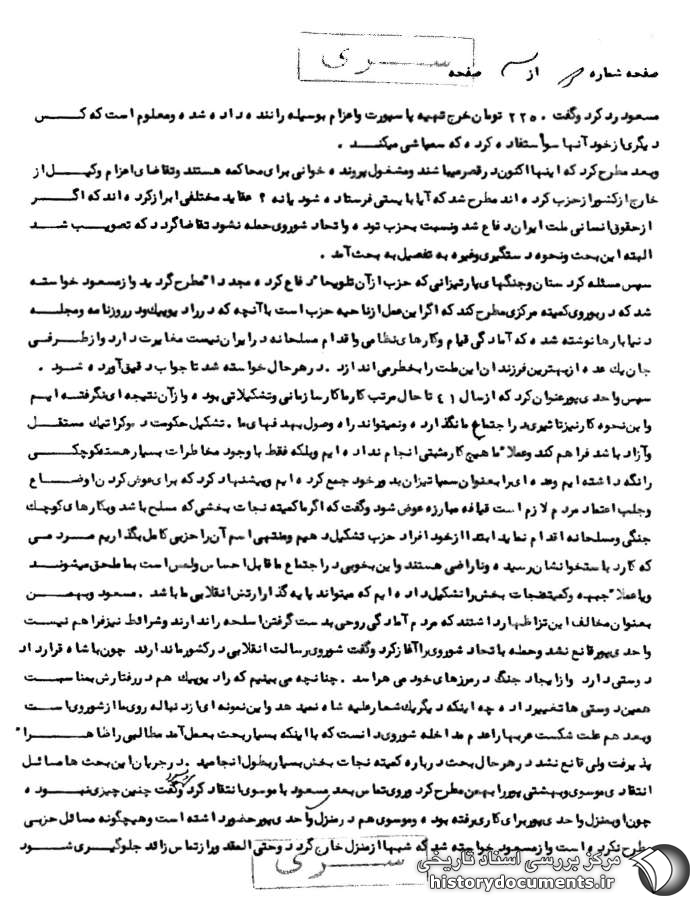 سری
صفحه شماره از صفحه
مسعود رد کرد وگفت ۲۲۵۰ تومان خرج تهیه پاسپورت واعزام بوسیله راننده داده شده ومعلوم است که کس
دیگری از خود آنها سوأستفاده کرده که سمپاشی میکند .
وبعد مطرح کرد که اینها اکنون درقصر میباشند ومشغول پرونده خوانی برای محاکمه هستند وتقاضای اعزام وکیل از
خارج از کشور از حزب کرده اند مطرح شد که آیا بایستی فرستاده شود یا نه ؟ عقاید مختلفی ابراز کرده اند که اگر
از حقوق انسانی ملت ایران دفاع شد ونسبت بحزب توده واتحاد شوروی حمله نشود تقاضا گردد که تصویب شد
البته این بحث ونحوه دستگیری وغیره به تفصیل به بحث آمد .
سپس مسئله کردستان وجنگهای پارتیزانی که حزب از آن تلویحا" دفاع کرده مجددا" مطرح گردید واز مسعود خواسته
شد که در بوروی کمیته مرکزی مطرح کند که اگر این عمل از ناحیه حزب است با آنچه که در رادیو پیک ودر روزنامه ومجله
دنیا بارها نوشته شده که آمادگی قیام وکارهای نظامی واقدام مسلحانه در ایران نیست مغایرت دارد واز طرفی
جان یک عده از بهترین فرزندان این ملت را بخطر می اندازد . در هر حال خواسته شد تا جواب دقیق آورده شود .
سپس واحدی پور عنوان کرد که از سال ۴۱ تا حال مرتب کار ما کار سازمانی وتشکیلاتی بوده واز آن نتیجه ای نگرفته ایم
واین نحوه کار نیز تاثیری در اجتماع ما نگذارده ونمیتواند راه وصول بهدفهای ما . تشکیل حکومت دموکراتیک مستقل
وآزاد باشد فراهم کند وعملا" ما هیچ کار مثبتی انجام نداده ایم وبلکه فقط با وجود مخاطرات بسیار هسته کوچکی
را نگه داشته ایم وعده ای را بعنوان سمپاتیزان بدور خود جمع کرده ایم وپیشنهاد کرد که برای عوض کردن اوضاع
وجلب اعتماد مردم لازم است قیافه مبارزه عوض شود وگفت که اگر ما کمیته نجات بخشی که مسلح باشد وبکارهای کوچک
جنگی ومسلحانه اقدام نماید ابتدا از خود افراد حزب تشکیل دهیم ومنتهی اسم آن را حزبی کامل بگذاریم مردمی
که کارد باستخوانشان رسیده وناراضی هستند واین بخوبی در اجتماع ما قابل احساس ولمس است بما ملحق میشوند
ویا عملا" جبهه وکمیته نجات بخش را تشکیل داده ایم که میتواند پایه گذار ارتش انقلابی ما باشد . مسعود وبهمن
بعنوان مخالف این تز اظهار داشتند که مردم آمادگی روحی بدست گرفتن اسلحه را ندارند وشرائط نیز فراهم نیست
واحدی پور قانع نشد وحمله باتحاد شوروی را آغاز کرد وگفت شوروی رسالت انقلابی در کشور ما ندارند چون با شاه قرارداد
دوستی دارد واز ایجاد جنگ در مرزهای خود می هراسد . چنانچه می بینیم که رادیو پیک هم در رفتارش بمناسبت
همین دوستی ها تغییر داده چه اینکه دیگر یک شعار علیه شاه نمیدهد واین نمونه ای از دنباله روی ما از شوروی است
وبعد هم علت شکست عربها را عدم مداخله شوروی دانست که با اینکه بسیار بحث بعمل آمد مطالبی را ظاهرا"
پذیرفت ولی قانع نشد در هر حال بحث درباره کمیته نجات بخش بسیار بطول انجامید . در جریان این بحث ها مسائل
انتقادی موسوی وبهشتی پور را بهمن مطرح کرد وروی تماس بعد مسعود با موسوی انتقاد کرد وگفت چنین چیزی نبوده
چون او بمنزل واحدی پور برای کاری رفته بود وموسوی هم در منزل واحدی پور حضور داشته است وهیچگونه مسائل حزبی
مطرح نکرده است واز مسعود خواسته شد که شبها از منزل خارج نگردد وحتی المقدور از تماس زائد جلوگیری شود
سری
مرکز بررسی اسناد تاریخی
historydocuments.ir